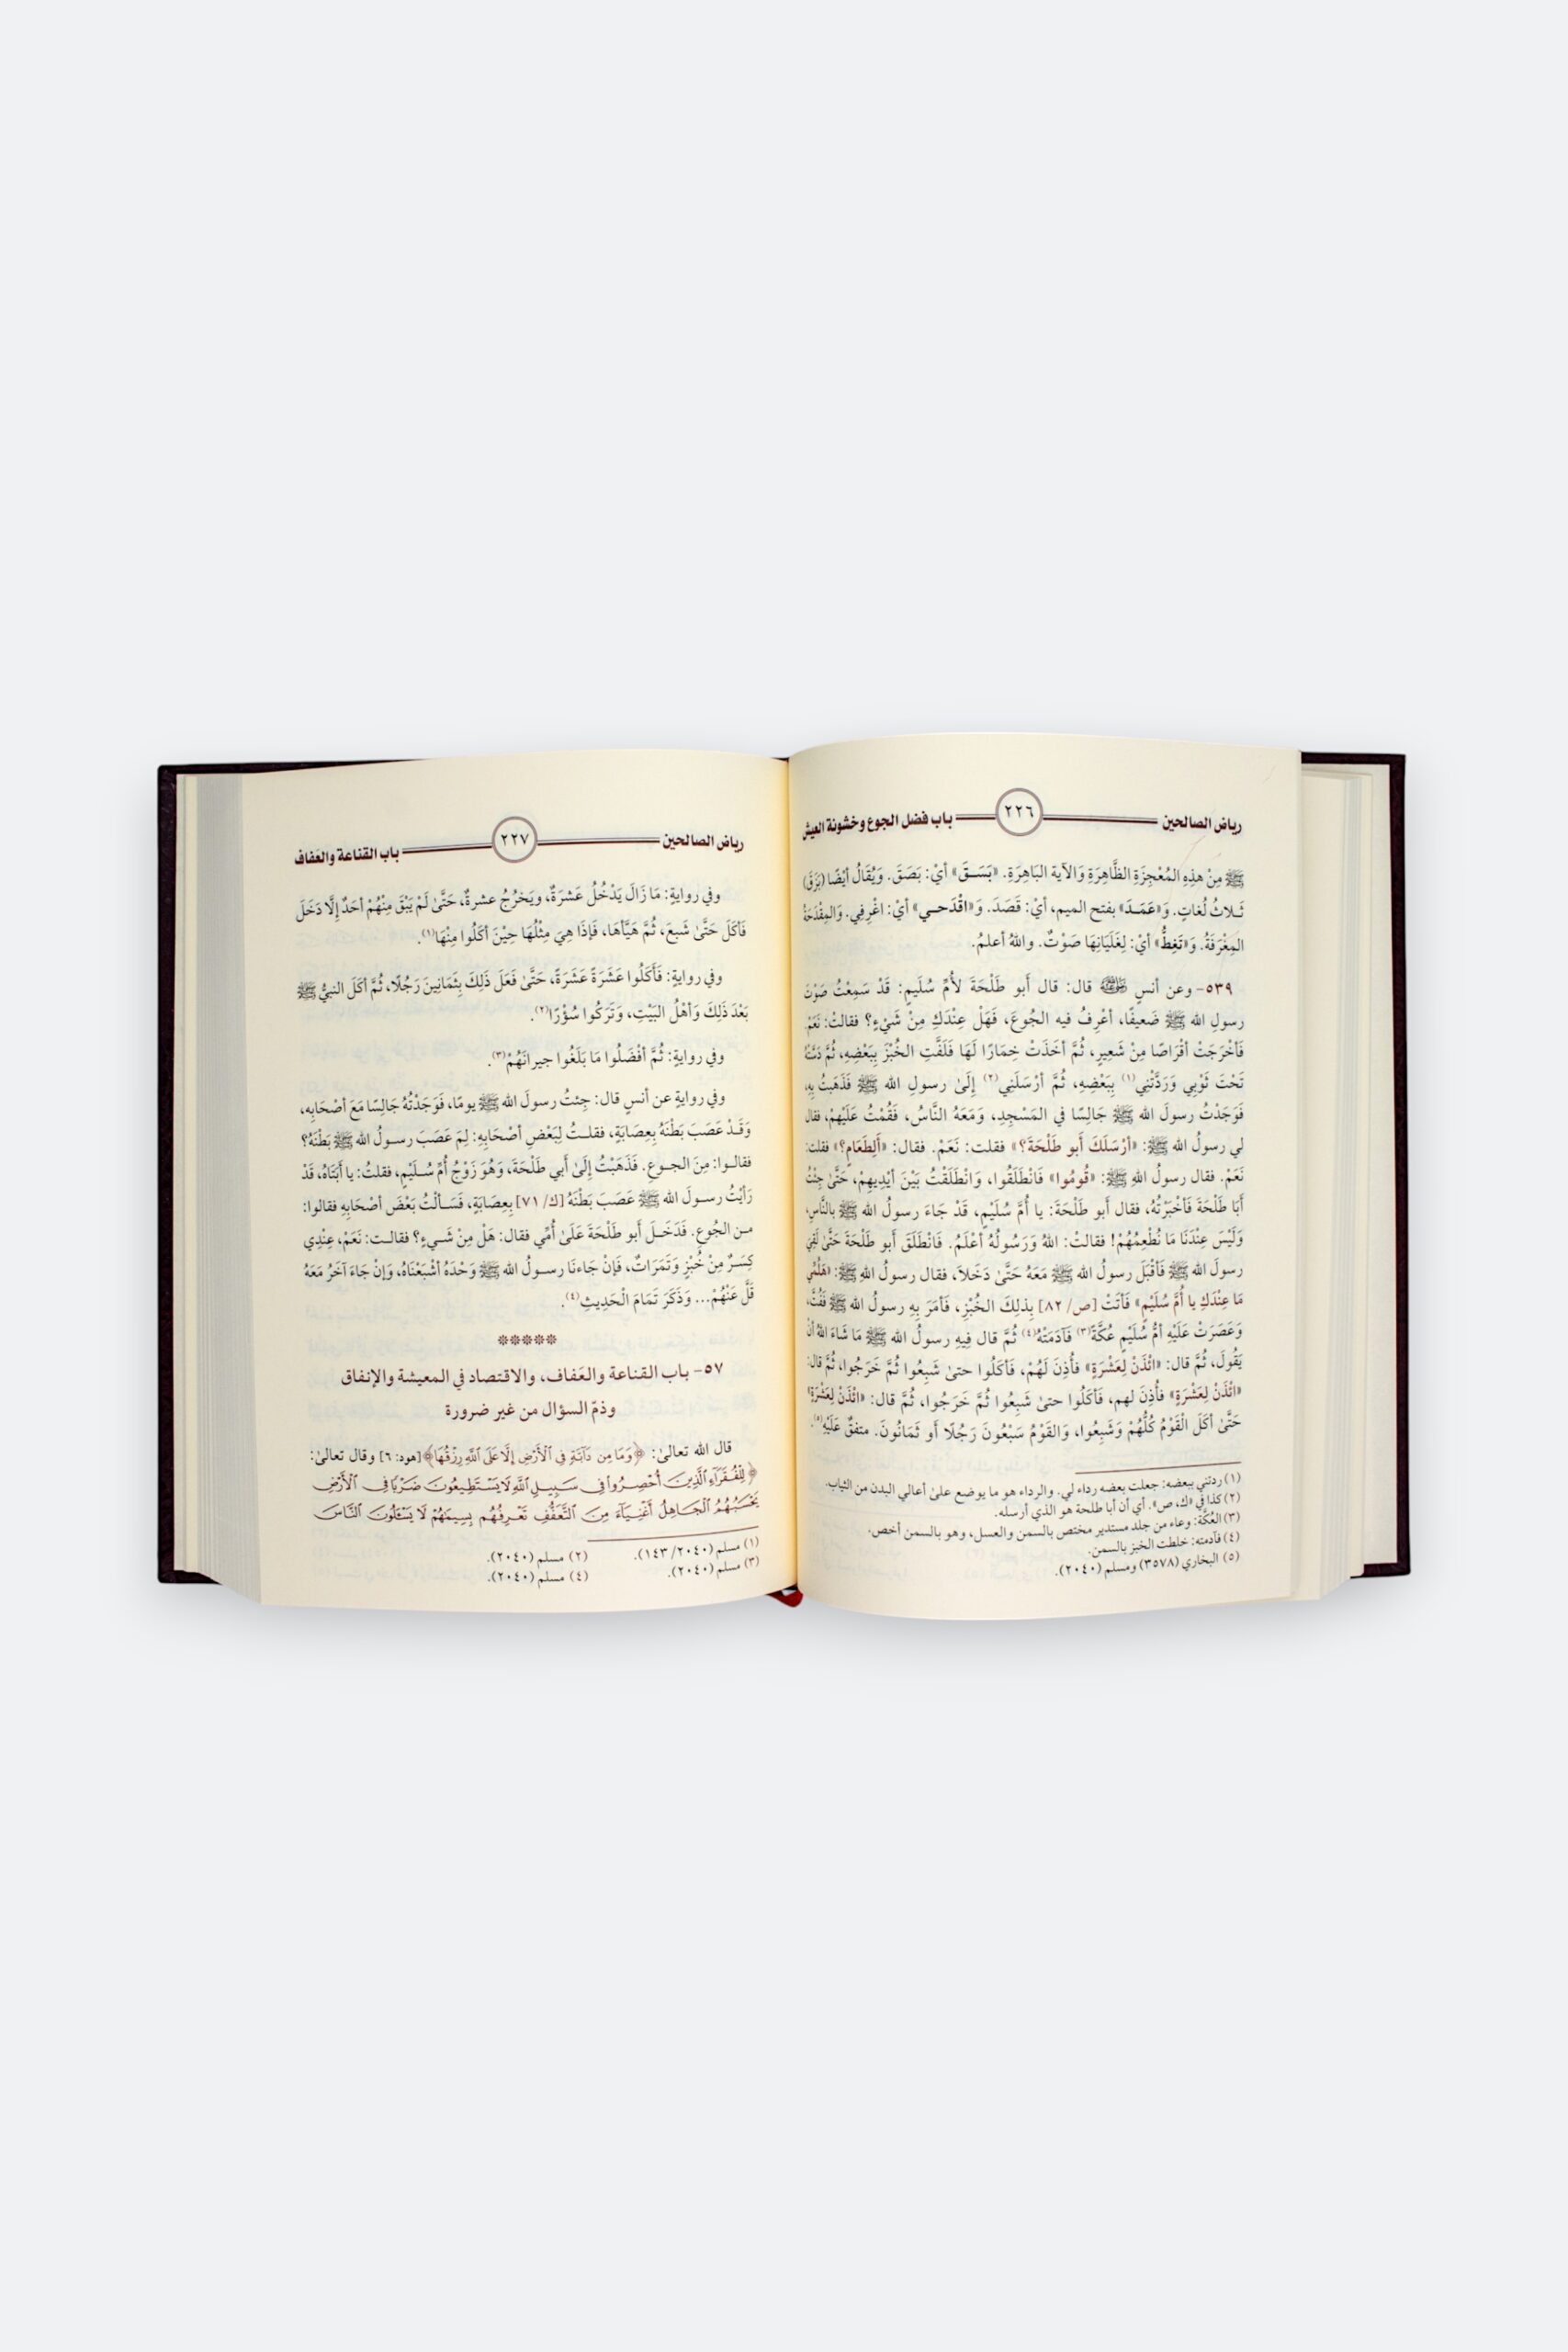 رياض الصالحين ٢٢٦ باب فضل الجوع وخشونة العيش
ﷺ مِنْ هذِهِ المُعْجِزَةِ الظَّاهِرَةِ وَالآية البَاهِرَةِ. «بَسَـقَ» أيْ: بَصَقَ. وَيُقَالُ أيْضًا (بَزَقَ)
ثَـلاثُ لُغاتٍ. وَ«عَمَـدَ» بفتح الميم، أيْ: قَصَدَ. وَ«اقْدَحـي» أيْ: اغْرِفِي. وَالمِقْدَحَةُ
المِغْرَفَةُ. وَ«تَغِطُّ» أيْ: لِغَلَيَانِهَا صَوْتٌ. واللهُ أعلمُ.
٥٣٩- وعن أنسٍ ﵁ قال: قال أَبو طَلْحَةَ لأُمِّ سُلَيمٍ: قَدْ سَمِعْتُ صَوْتَ
رسولِ الله ﷺ ضَعيفًا، أعْرِفُ فيه الجُوعَ، فَهَلْ عِنْدَكِ مِنْ شَيْءٍ؟ فقالتْ: نَعَمْ.
فَأخْرَجَتْ أقْرَاصًا مِنْ شَعِيرٍ، ثُمَّ أخَذَتْ خِمَارًا لَهَا فَلَفَّتِ الخُبْزَ بِبَعْضِهِ، ثُمَّ دَسَّتْهُ
تَحْتَ ثَوْبِي وَرَدَّتْنِي(١) بِبَعْضِهِ، ثُمَّ أرْسَلَنِي(٢) إِلَىٰ رسولِ الله ﷺ فَذَهَبتُ بِهِ،
فَوَجَدْتُ رسولَ الله ﷺ جَالِسًا في المَسْجِدِ، وَمَعَهُ النَّاسُ، فَقُمْتُ عَلَيْهِمْ، فقال
لي رسولُ الله ﷺ: «أرْسَلَكَ أَبو طَلْحَةَ؟» فقلت: نَعَمْ. فقال: «أَلِطَعَامٍ؟» فقلت:
نَعَمْ. فقال رسولُ اللهِ ﷺ: «قُومُوا» فَانْطَلَقُوا، وَانْطَلَقْتُ بَيْنَ أيْدِيهِمْ، حَتَّىٰ جِئْتُ
أبَا طَلْحَةَ فَأخْبَرْتُهُ، فقال أَبو طَلْحَةَ: يا أُمَّ سُلَيْمٍ، قَدْ جَاءَ رسولُ الله ﷺ بالنَّاسِ،
وَلَيْسَ عِنْدَنَا مَا نُطْعِمُهُمْ! فقالتْ: اللهُ وَرَسُولُهُ أعْلَمُ. فَانْطَلَقَ أَبو طَلْحَةَ حَتَّىٰ لَقِيَ
رسولَ الله ﷺ فَأَقْبَلَ رسولُ الله ﷺ مَعَهُ حَتَّىٰ دَخَلاَ، فقال رسولُ اللهِ ﷺ: «هَلُمِّي
مَا عِنْدَكِ يا أُمَّ سُلَيْمٍ» فَأتَتْ [ص/ ٨٢] بِذلِكَ الخُبْزِ، فَأمَرَ بِهِ رسولُ الله ﷺ فَفُتَّ،
وَعَصَرَتْ عَلَيْهِ أمُّ سُلَيْمٍ عُكَّةً(٣) فَآدَمَتْهُ(٤) ثُمَّ قال فِيهِ رسولُ الله ﷺ مَا شَاءَ اللهُ أنْ
يَقُولَ، ثُمَّ قال: «ائْذَنْ لِعَشْرَةٍ» فأُذِنَ لَهُمْ، فَأكَلُوا حتىٰ شَبِعُوا ثُمَّ خَرَجُوا، ثُمَّ قال:
«ائْذَنْ لِعَشْرَةٍ» فأُذِنَ لهم، فَأكَلُوا حتىٰ شَبِعُوا ثُمَّ خَرَجُوا، ثُمَّ قال: «ائْذَنْ لِعَشْرَةٍ»
حَتَّىٰ أكَلَ الْقَوْمُ كُلُّهُمْ وَشَبِعُوا، وَالقَوْمُ سَبْعُونَ رَجُلًا أو ثَمَانُونَ. متفقٌ عَلَيْهِ(٥).
(١) ردتني ببعضه: جعلت بعضه رداء لي. والرداء هو ما يوضع علىٰ أعالي البدن من الثياب.
(٢) كذا في «ك، ص». أي أن أبا طلحة هو الذي أرسله.
(٣) العُكَّة: وعاء من جلد مستدير مختص بالسمن والعسل، وهو بالسمن أخص.
(٤) فآدمته: خلطت الخبز بالسمن.
(٥) البخاري (٣٥٧٨) ومسلم (٢٠٤٠).
رياض الصالحين ٢٢٧ باب القناعة والعَفاف
وفي روايةٍ: مَا زَالَ يَدْخُلُ عَشرَةٌ، ويَخرُجُ عشرةٌ، حَتَّىٰ لَمْ يَبْقَ مِنْهُمْ أحَدٌ إلَّا دَخَلَ
فَأكَلَ حَتَّىٰ شَبعَ، ثُمَّ هَيَّأهَا، فَإذَا هِيَ مِثْلُهَا حِيْنَ أكَلُوا مِنْهَا(١).
وفي روايةٍ: فَأَكَلُوا عَشَرَةً عَشَرَةً، حَتَّىٰ فَعَلَ ذَلِكَ بِثَمَانِينَ رَجُلًا، ثُمَّ أكَلَ النبيُّ ﷺ
بَعْدَ ذَلِكَ وَأهْلُ البَيْتِ، وَتَرَكُوا سُؤْرًا(٢).
وفي روايةٍ: ثُمَّ أفْضَلُوا مَا بَلَغُوا جيرانَهُمْ(٣).
وفي روايةٍ عن أنسٍ قال: جِئتُ رسولَ الله ﷺ يومًا، فَوَجَدْتُهُ جَالِسًا مَعَ أصْحَابِه،
وَقَـدْ عَصَبَ بَطْنَهُ بِعِصَابَةٍ، فقلـتُ لِبَعْضِ أصْحَابِهِ: لِمَ عَصَبَ رسـولُ الله ﷺ بَطْنَهُ؟
فقالـوا: مِنَ الجـوعِ. فَذَهَبْتُ إِلَىٰ أَبي طَلْحَةَ، وَهُوَ زَوْجُ أُمِّ سُـلَيْمٍ، فقلتُ: يا أبَتَاهُ، قَدْ
رَأيْتُ رسـولَ الله ﷺ عَصَبَ بَطْنَهُ [ك/ ٧١] بِعِصَابَةٍ، فَسَـألْتُ بَعْضَ أصْحَابِهِ فقالوا:
مـن الجُوعِ. فَدَخَـلَ أَبو طَلْحَةَ عَلَىٰ أُمِّي فقال: هَلْ مِنْ شَـيءٍ؟ فقالـت: نَعَمْ، عِنْدِي
كِسَرٌ مِنْ خُبْزٍ وَتَمَرَاتٌ، فَإنْ جَاءنَا رسـولُ الله ﷺ وَحْدَهُ أشْبَعْنَاهُ، وَإنْ جَاءَ آخَرُ مَعَهُ
قَلَّ عَنْهُمْ... وَذَكَرَ تَمَامَ الْحَدِيثِ(٤).
*****
٥٧- باب القناعة والعَفاف، والاقتصاد في المعيشة والإنفاق
وذمّ السؤال من غير ضرورة
قال الله تعالىٰ: ﴿وَمَا مِن دَآبَّةٍ فِي ٱلْأَرْضِ إِلَّا عَلَى ٱللَّهِ رِزْقُهَا﴾ [هود: ٦] وقال تعالىٰ:
﴿لِلْفُقَرَآءِ ٱلَّذِينَ أُحْصِرُوا۟ فِى سَبِيلِ ٱللَّهِ لَا يَسْتَطِيعُونَ ضَرْبًا فِى ٱلْأَرْضِ
يَحْسَبُهُمُ ٱلْجَاهِلُ أَغْنِيَآءَ مِنَ ٱلتَّعَفُّفِ تَعْرِفُهُم بِسِيمَٰهُمْ لَا يَسْـَٔلُونَ ٱلنَّاسَ
(١) مسلم (٢٠٤٠/ ١٤٣). (٢) مسلم (٢٠٤٠).
(٣) مسلم (٢٠٤٠). (٤) مسلم (٢٠٤٠).